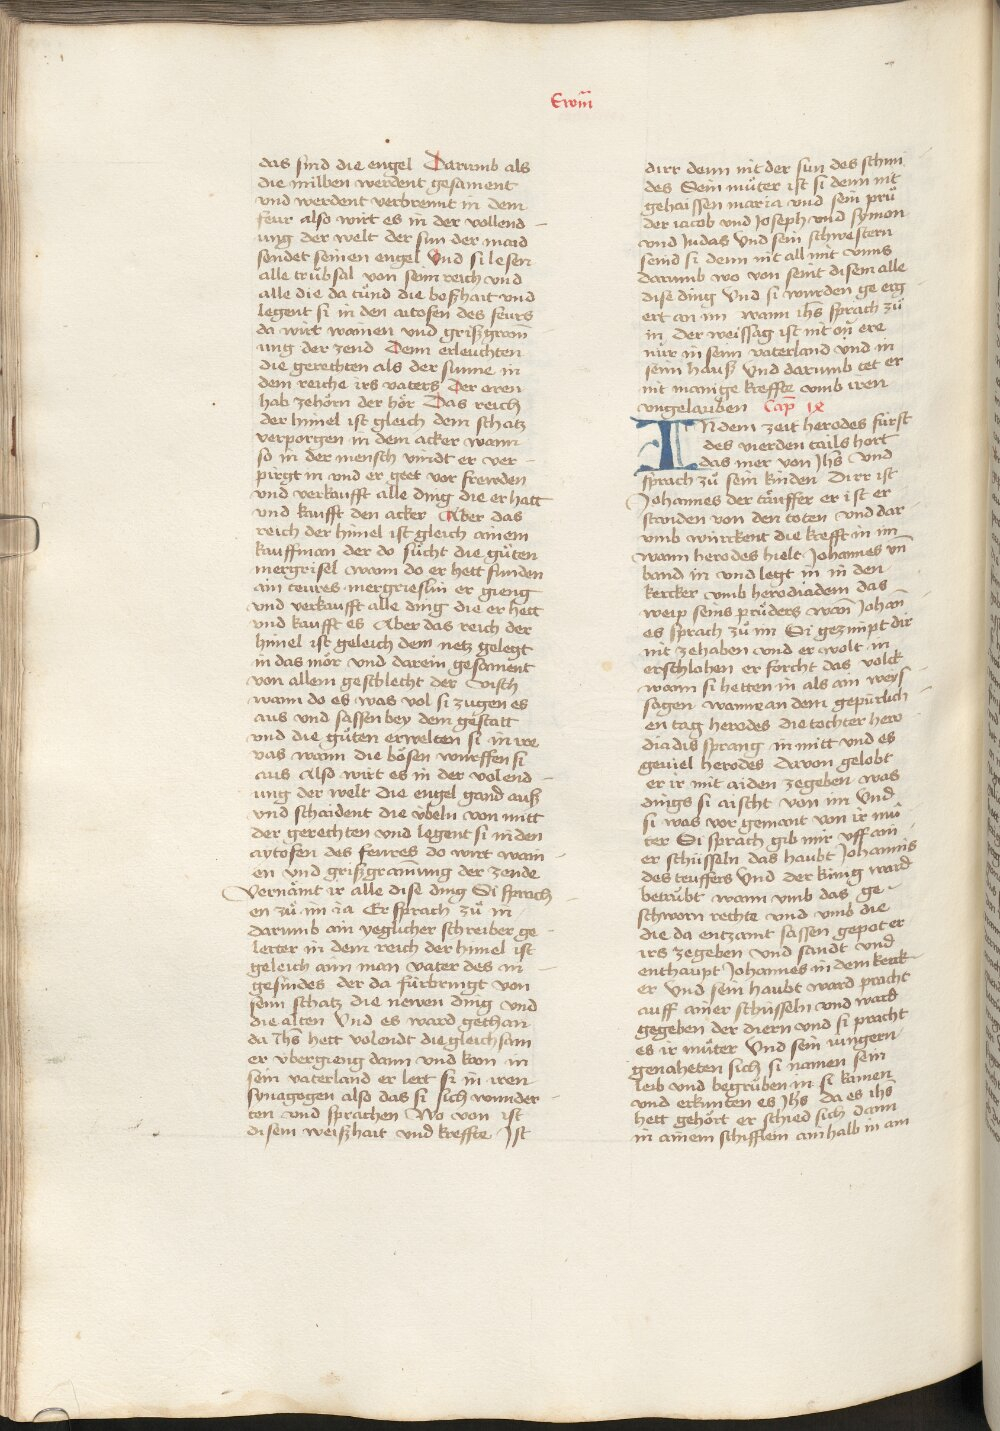 Ewm̄
das sind die engel Darumb als
die milben werdent gesament
vnd werdent verbrennt in dem
feur also wirt es in der vollend
ung der welt der sun der maid
sendet seinen engel Vnd si lesen
alle trübsal von seim reich vnd
alle die da tůnd die boßhait vnd
legent si in den aitofen des feurs
da wirt wainen vnd grißgram̄
ung der zend Denn erleuchten
die gerechten als der sunne in
dem reiche irs vaters Der oren
hab zehörn der hör Das reich
der himel ist gleich dem schatz
verporgen in dem acker wann
so in der mensch vindt er ver
pirgt in vnd er geet vor frewden
vnd verkaufft alle ding die er hatt
vnd kaufft den acker Aber das
reich der himel ist gleich ainem
kauffman der do sůcht die gůten
mergrisel wann do er hett funden
ain teures mergrieslin er gieng
vnd verkaufft alle ding die er hett
vnd kaufft es Aber das reich der
himel ist geleich dem netz gelegt
in das mör vnd darein gesament
von allem geschlecht der visch
wann do es was vol si zugen es
aus vnd sassen bey dem gestatt
vnd die gůten erwelten si in ire
vas wann die bösen wurffen si
aus Also wirt es in der volend
ung der welt die engel gand auß
vnd schaident die übeln von mitt
der gerechten vnd legent si in den
aytofen des feures do wirt wain
en vnd grißgram̄ung der zende
Vernämt ir alle dise ding Si sprach
en zů im ia Er sprach zů in
darumb ain yeglicher schreiber ge
lerter in dem reich der himel ist
geleich aim man vater des in
gesindes der da fürbringt von
seim schatz die newen ding vnd
die alten Vnd es ward gethan
da Ihs hett volendt die gleichsam
er vbergieng dann vnd kom in
sein vaterland er lert si in iren
synagogen also das si sich wunder
ten vnd sprachen Wo von ist
disem weißhait vnd kreffte Ist
dirr denn nit der sun des schmi
des Sein můter ist si denn nit
gehaissen maria vnd sein prů
der iacob vnd Joseph vnd symon
vnd Judas Vnd sein schwestern
seind si denn nit all mit vnns
darumb wo von seint disem alle
dise ding Vnd si wurden ge erg
ert an im wann ihs sprach zů
in der weissag ist nit on̄ ere
nůr in seim vaterland vnd in
seim hauß Vnd darumb tet er
nit manige kreffte vmb iren
vngelauben Cap̄ ix
IN dem zeit herodes fürst
des vierden tails hort
das mer von Jhs vnd
sprach zů sein kinden Dirr ist
Johannes der täuffer er ist er
standen von den toten vnd dar
vmb würckent die krefft in im
wann herodes hielt Johannes vn̄
band in vnd legt in in den
kercker vmb herodiadem das
weip seins průders wan̄ Johan̄
es sprach zů im Si gezimpt dir
nit zehaben vnd er wolt in
erschlahen er forcht das volck
wann si hetten in als ain weys
sagen wanne an dem gepürlich
en tag herodes die tochter hero
diadis sprang in mitt vnd es
geuiel herodes davon gelobt
er ir mit aiden zegeben was
dings si aischt von im Vnd
si was vor gemant von ir mů
ter Si sprach gib mir vff ain
er schüsseln das haubt Johannis
des teuffers Vnd der künig ward
betrübt wann vmb das ge
schworn rechte vnd vmb die
die da entzamt sassen gepot er
irs zegeben vnd sandt vnd
enthaupt Johannes in dem kerck
er Vnd sein haubt ward pracht
auff ainer schüsseln vnd ward
gegeben der diern vnd si pracht
es ir můter Vnd sein iungern
genaheten sich si namen sein
leib vnd begrůben in si kamen
vnd erkunten es Jhs da es ihs
hett gehört er schied sich dann
in ainem schifflein ainhalb in ain